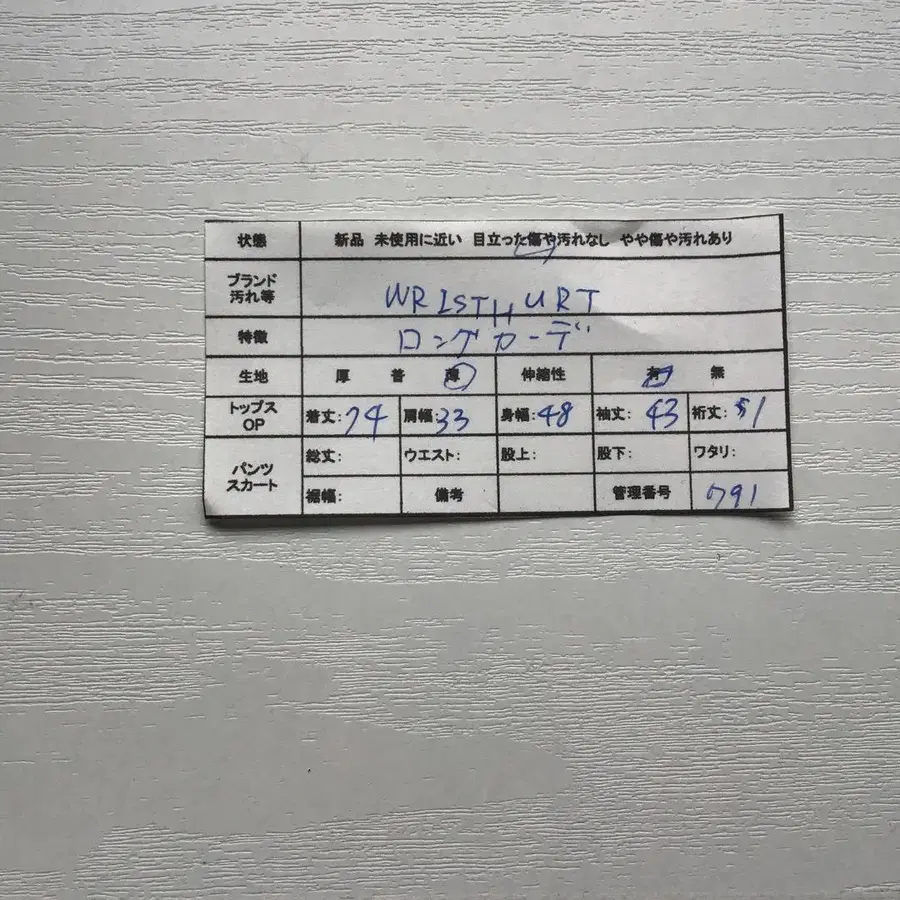 状態 新品 未使用に近い 目立った傷や汚れなし やや傷や汚れあり
ブランド
汚れ等
WRISTHURT
特徴 ロングカーデ
生地 厚 普 薄 伸縮性 有 無
トップス
OP
着丈:74 肩幅:33 身幅:48 袖丈:43 裄丈:51
パンツ
スカート
総丈: ウエスト: 股上: 股下: ワタリ:
裾幅: 備考 管理番号 791